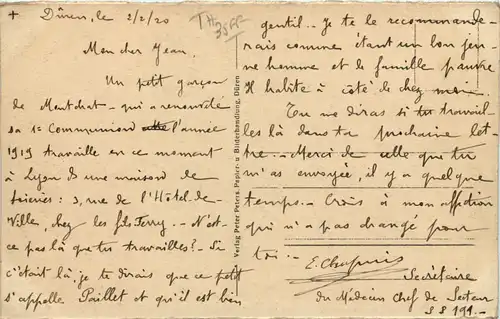 + Düren, le 2/2/20
Mon cher Jean.
Un petit garçon
de Montchat - qui a renouvelé
sa 1e Communion l'année
1919 travaille en ce moment
à Lyon ds une maison de
soieries : 3, rue de l'Hôtel-de-
Ville, chez les fils Ferry. - N'est-
ce pas là que tu travailles? - Si
c'était là je te dirais que ce petit
s'appelle Paillet et qu'il est bien
gentil. - Je te le recommande-
rais comme étant un bon jeu-
ne homme et de famille pauvre
Il habite à côté de chez moi.
Tu me diras si tu travail-
les là dans ta prochaine let-
tre. - Merci de celle que tu
m'as envoyée, il y a quelque
temps. - Crois à mon affection
qui n'a pas changé pour
toi. -
E. Chapuis
Secrétaire
du Médecin Chef de Secteur
S.P. 199. -
Verlag Peter Peters, Papier- u. Bilderhandlung, Düren